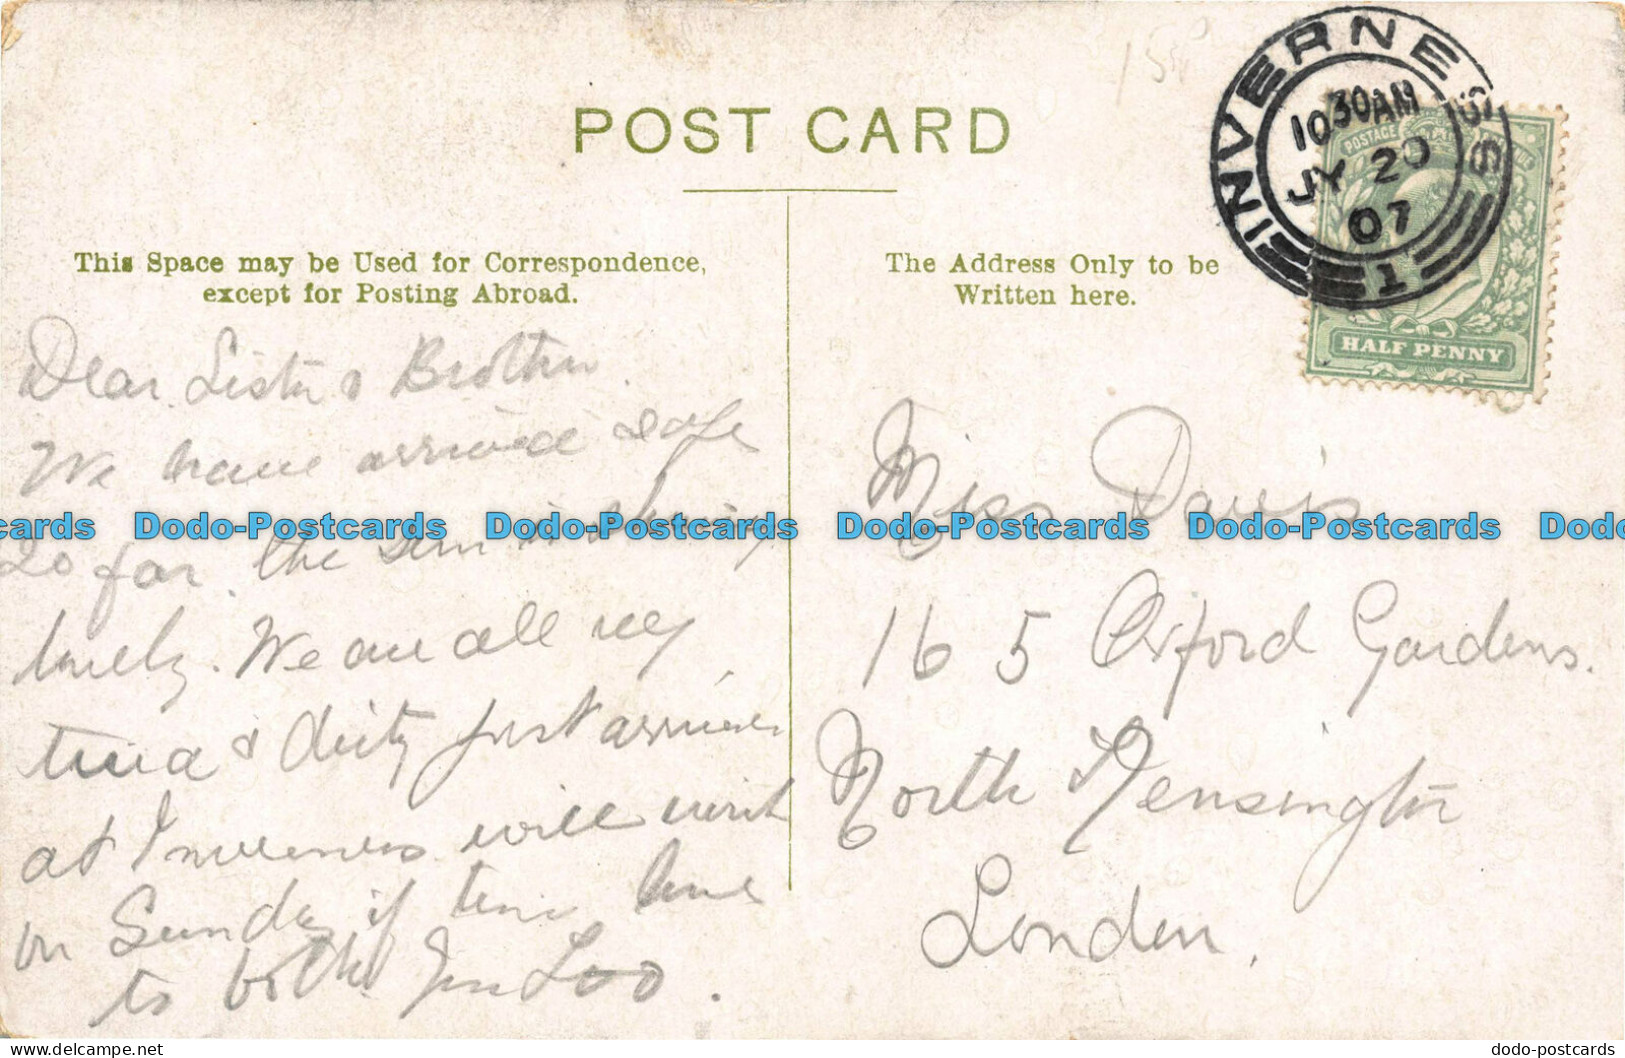 POST CARD
This Space may be Used for Correspondence,
except for Posting Abroad.
Dear Sister & Brother
We have arrived safe
so far. the sun is shining
lovely. We are all very
tired & dirty just arrived
at Inverness will write
on Sunday if time love
to both
The Address Only to be
Written here.
Miss Davis
165 Oxford Gardens.
North Kensington
London.
INVERNESS
10 30AM
JY 20
07
1
POSTAGE
HALF PENNY
cards Dodo-Postcards Dodo-Postcards Dodo-Postcards Dodo-Postcards Dodo
dodo-postcards